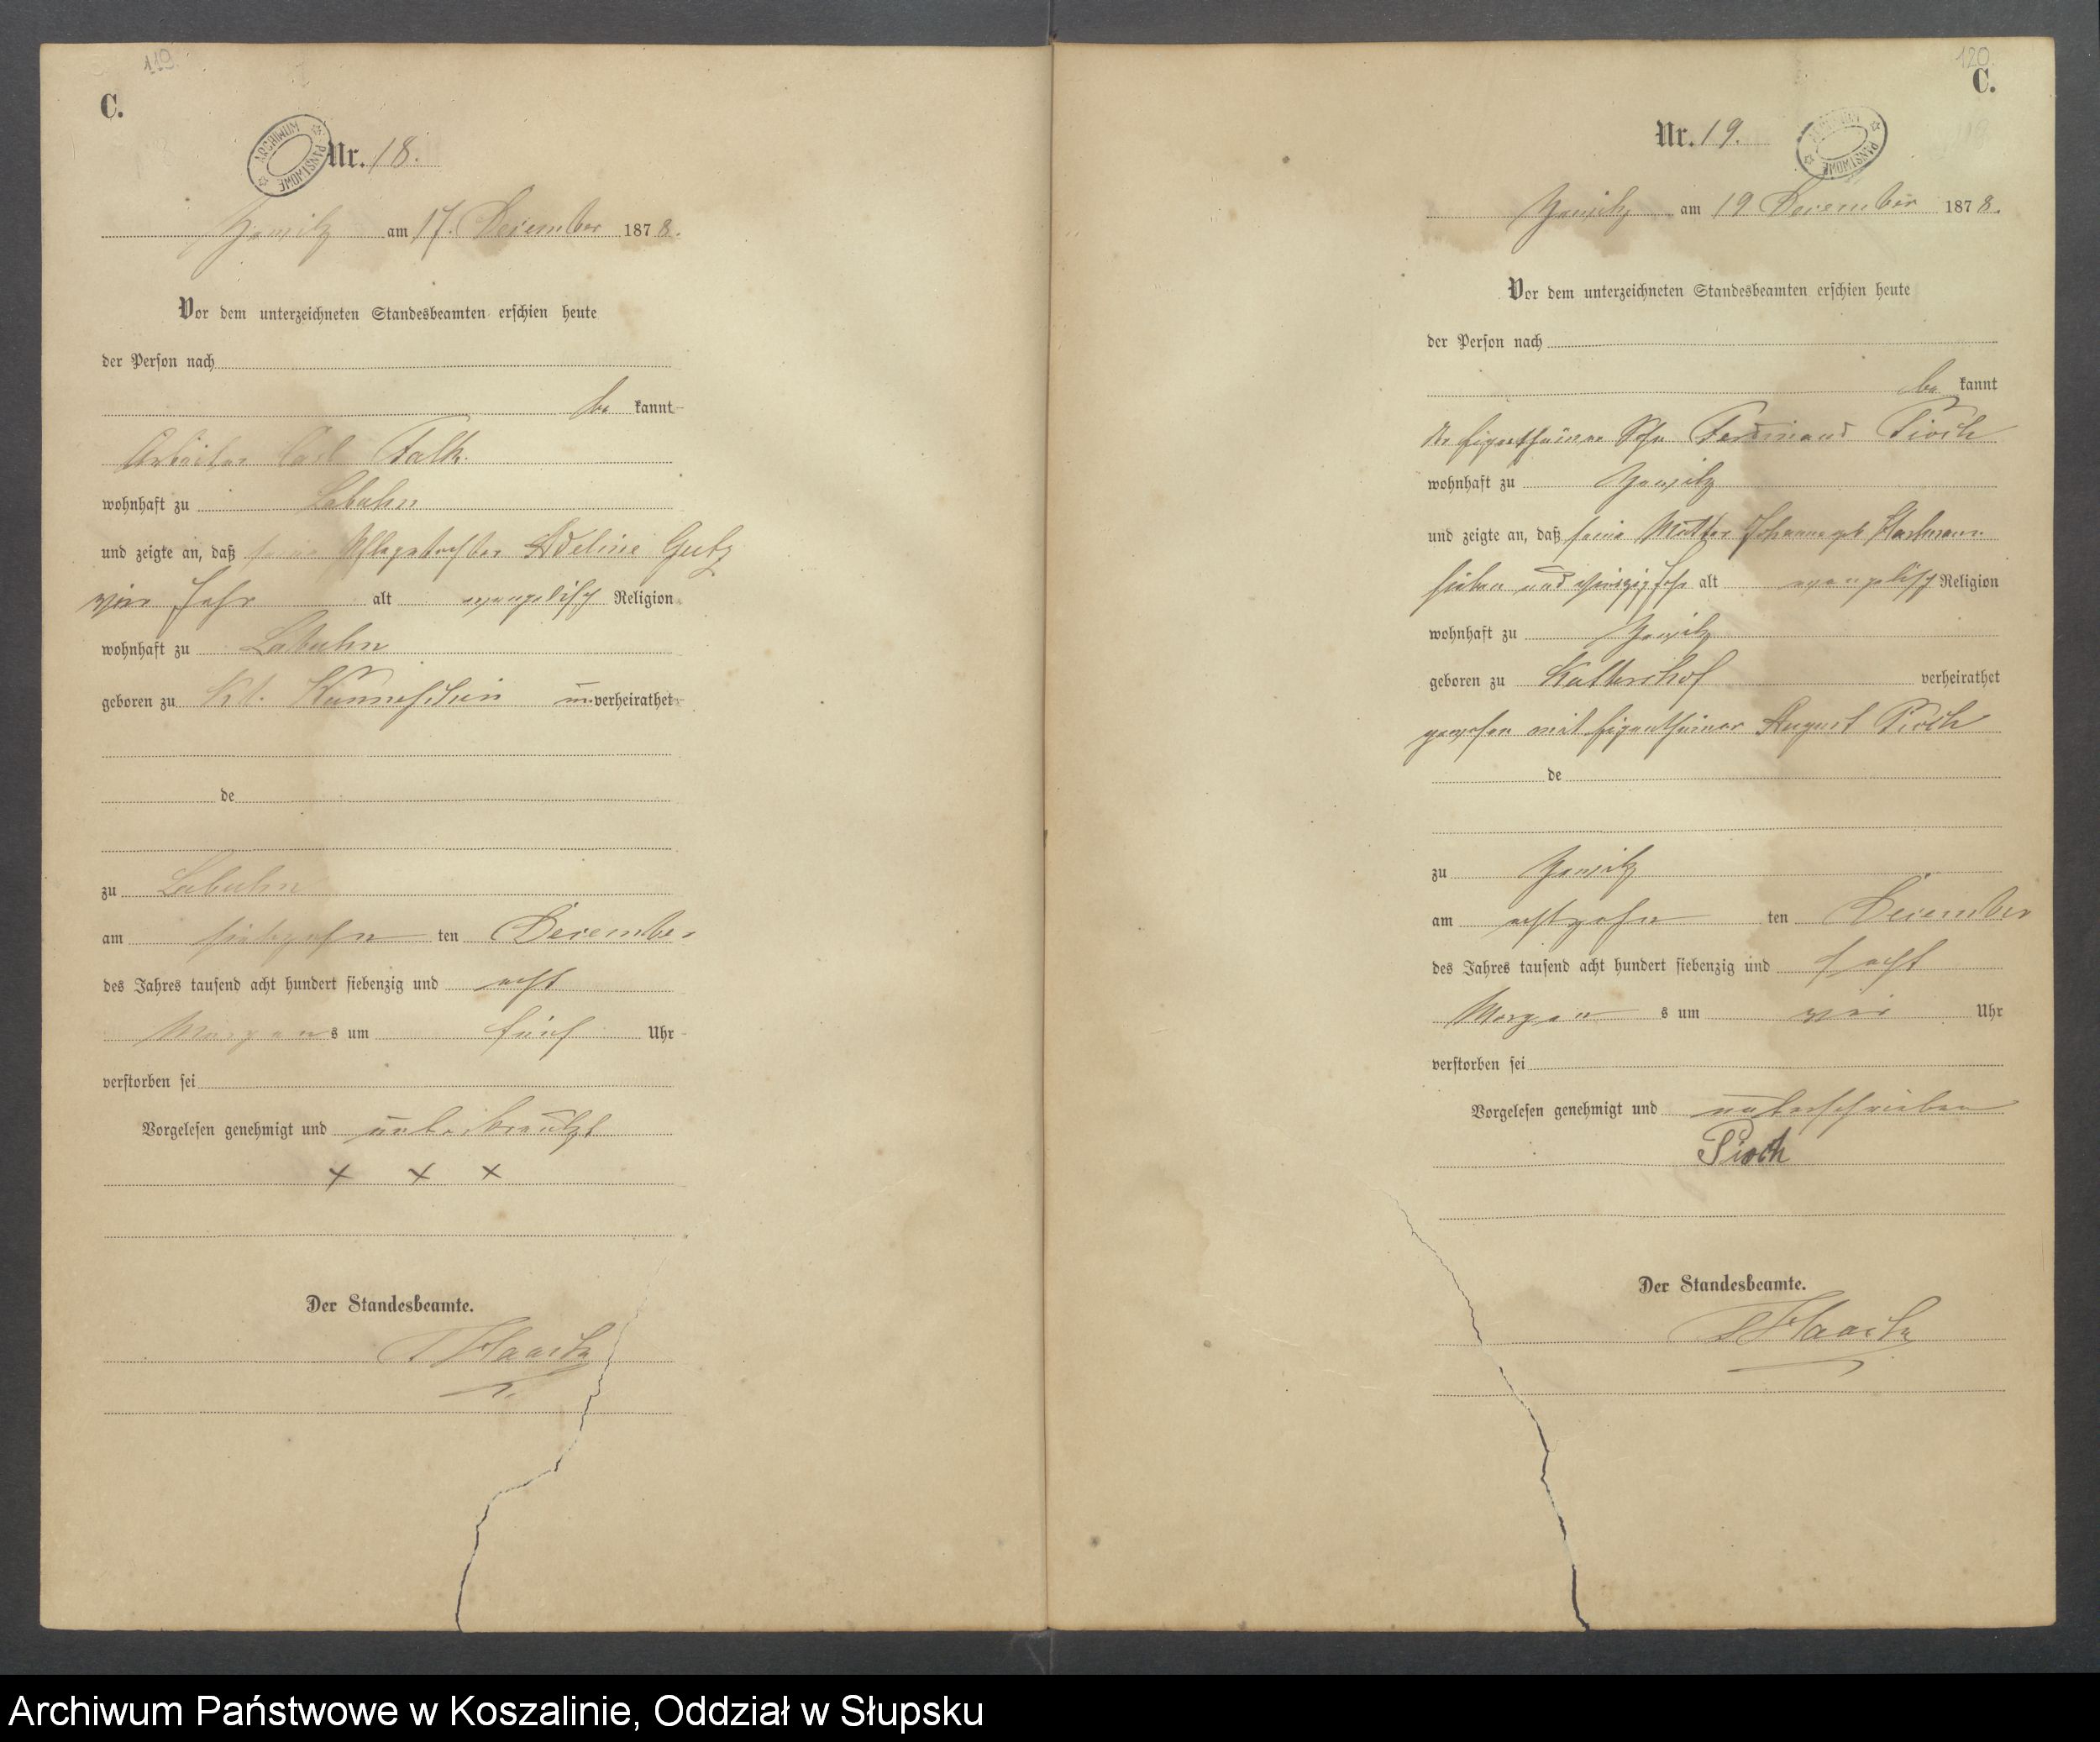 119.
C.
ARCHIWUM PAŃSTWOWE
Nr. 18.
am 17. December 1878.
Vor dem unterzeichneten Standesbeamten erschien heute
der Person nach
be kannt
Arbeiter Carl Falk.
wohnhaft zu Labuhn
und zeigte an, daß seine Pflegetochter Adeline Gutz
vier Jahr alt evangelisch Religion
wohnhaft zu Labuhn
geboren zu Kl. unverheirathet
de
zu Labuhn
am siebzehn ten December
des Jahres tausend acht hundert siebenzig und acht
Morgens um fünf Uhr
verstorben sei
Vorgelesen genehmigt und unterkreuzt
x x x
Der Standesbeamte.
Haack
120
C.
Nr. 19.
ARCHIWUM PAŃSTWOWE
am 19 December 1878.
Vor dem unterzeichneten Standesbeamten erschien heute
der Person nach
be kannt
der Eigenthümer Sohn Ferdinand Pioch
wohnhaft zu
und zeigte an, daß seine Mutter Johanne geb
sieben und Jahr alt evangelisch Religion
wohnhaft zu
geboren zu verheirathet
gewesen mit Eigenthümer August Pioch
de
zu
am achtzehn ten December
des Jahres tausend acht hundert siebenzig und acht
Morgen s um vier Uhr
verstorben sei
Vorgelesen genehmigt und unterschrieben
Pioch
Der Standesbeamte.
Haack
Archiwum Państwowe w Koszalinie, Oddział w Słupsku